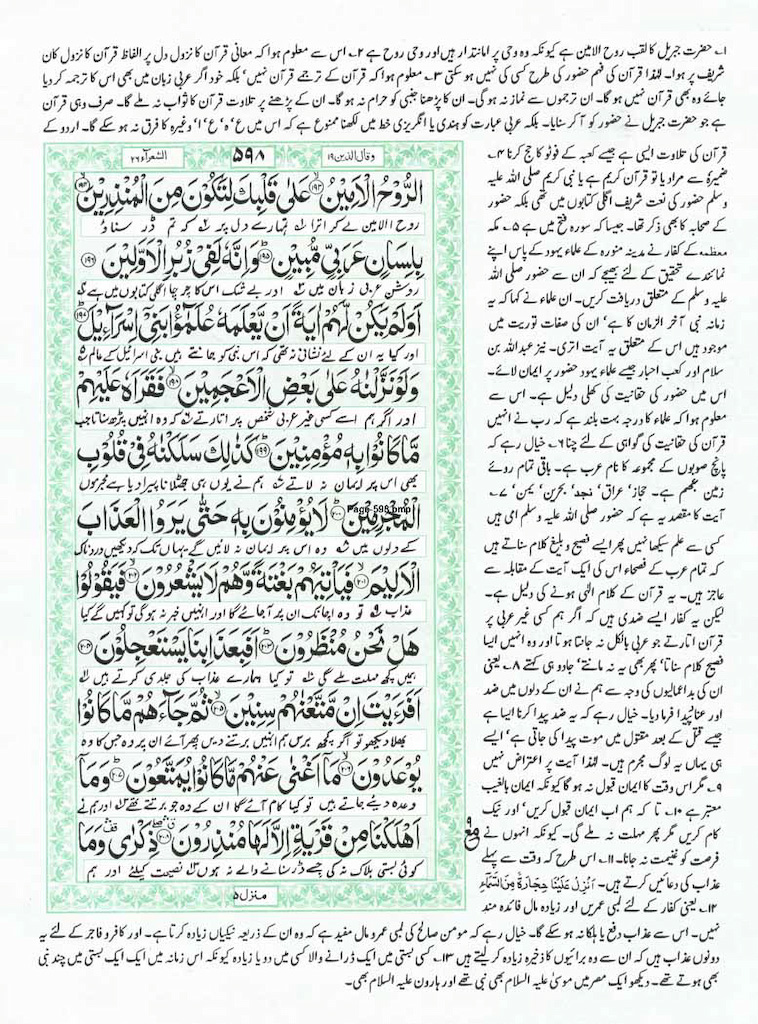 ۱۔ حضرت جبریل کا لقب روح الامین ہے کیونکہ وہ وحی پر امانتدار ہیں اور وحی روح ہے ۲۔ اس سے معلوم ہوا کہ معانی قرآن کا نزول دل پر الفاظ قرآن کا نزول کان
شریف پر ہوا۔ لہٰذا قرآن کی فہم حضور کی طرح کسی کی نہیں ہو سکتی ۳۔ معلوم ہوا کہ قرآن کے ترجمے قرآن نہیں' بلکہ خود اگر عربی زبان میں بھی اس کا ترجمہ کر دیا
جائے وہ بھی قرآن نہیں ہو گا۔ ان ترجموں سے نماز نہ ہو گی۔ ان کا پڑھنا جنبی کو حرام نہ ہو گا۔ ان کے پڑھنے پر تلاوت قرآن کا ثواب نہ ملے گا۔ صرف وہی قرآن
ہے جو حضرت جبریل نے حضور کو آ کر سنایا۔ بلکہ عربی عبارت کو ہندی یا انگریزی خط میں لکھنا ممنوع ہے کہ اس میں ع' ہ' ع' ا' وغیرہ کا فرق نہ ہو سکے گا۔ اردو کے
قرآن کی تلاوت ایسی ہے جیسے کعبہ کے فوٹو کا حج کرنا ۴۔
ضمیر ہٗ سے مراد یا تو قرآن کریم ہے یا نبی کریم صلی اللہ علیہ
وسلم حضور کی نعت شریف اگلی کتابوں میں تھی بلکہ حضور
کے صحابہ کا بھی ذکر تھا۔ جیسا کہ سورہ فتح میں ہے ۵۔ مکہ
معظمہ کے کفار نے مدینہ منورہ کے علماء یہود کے پاس اپنے
نمائندے تحقیق کے لئے بھیجے کہ ان سے حضور صلی اللہ
علیہ وسلم کے متعلق دریافت کریں۔ ان علماء نے کہا کہ یہ
زمانہ نبی آخر الزمان کا ہے' ان کی صفات توریت میں
موجود ہیں اس کے متعلق یہ آیت اتری۔ نیز عبداللہ بن
سلام اور کعب احبار جیسے علماء یہود حضور پر ایمان لائے۔
اس میں حضور کی حقانیت کی کھلی دلیل ہے۔ اس سے
معلوم ہوا کہ علماء کا درجہ بہت بلند ہے کہ رب نے انہیں
قرآن کی حقانیت کی گواہی کے لئے چنا ۶۔ خیال رہے کہ
پانچ صوبوں کے مجموعہ کا نام عرب ہے۔ باقی تمام روئے
زمین عجم ہے۔ حجاز' عراق' نجد' بحرین' یمن' ۷۔
آیت کا مقصد یہ ہے کہ حضور صلی اللہ علیہ وسلم امی ہیں
کسی سے علم سیکھا نہیں پھر ایسے فصیح و بلیغ کلام سناتے ہیں
کہ تمام عرب کے فصحاء اس کی ایک آیت کے مقابلہ سے
عاجز ہیں۔ یہ قرآن کے کلام الٰہی ہونے کی دلیل ہے۔
لیکن یہ کفار ایسے ضدی ہیں کہ اگر ہم کسی غیر عربی پر
قرآن اتارتے جو عربی بالکل نہ جانتا ہوتا اور وہ انہیں ایسا
فصیح کلام سناتا' پھر بھی یہ نہ مانتے' جادو ہی کہتے ۸۔ یعنی
ان کی بداعمالیوں کی وجہ سے ہم نے ان کے دلوں میں ضد
اور عناد پیدا فرما دیا۔ خیال رہے کہ یہ ضد پیدا کرنا ایسا ہے
جیسے قتل کے بعد مقتول میں موت پیدا کی جاتی ہے' ایسے
ہی یہاں یہ لوگ مجرم ہیں۔ لہٰذا آیت پر اعتراض نہیں
۹۔ مگر اس وقت کا ایمان قبول نہ ہو گا کیونکہ ایمان بالغیب
معتبر ہے ۱۰۔ تا کہ ہم اب ایمان قبول کریں' اور نیک
کام کریں مگر پھر مہلت نہ ملے گی۔ کیونکہ انہوں نے
فرصت کو غنیمت نہ جانا۔ ۱۱۔ اس طرح کہ وقت سے پہلے
عذاب کی دعائیں کرتے ہیں۔ اَنْزِلْ عَلَیْنَا حِجَارَۃً مِّنَ السَّمَآءِ
۱۲۔ یعنی کفار کے لئے لمبی عمریں اور زیادہ مال فائدہ مند
وقال الذین ۱۹ ۵۹۸ الشعرآء ۲۶
الرُّوْحُ الْاَمِیْنُ ﴿۱۹۳﴾ عَلٰی قَلْبِكَ لِتَكُوْنَ مِنَ الْمُنْذِرِیْنَ ﴿۱۹۴﴾
روح الامین لے کر اترا تمہارے دل پر کہ تم ڈر سناؤ
بِلِسَانٍ عَرَبِیٍّ مُّبِیْنٍ ﴿۱۹۵﴾ وَاِنَّهٗ لَفِیْ زُبُرِ الْاَوَّلِیْنَ ﴿۱۹۶﴾
روشن عربی زبان میں اور بے شک اس کا چرچا اگلی کتابوں میں ہے
اَوَلَمْ یَكُنْ لَّهُمْ اٰیَةً اَنْ یَّعْلَمَهٗ عُلَمٰٓؤُا بَنِیْۤ اِسْرَآءِیْلَ ﴿۱۹۷﴾
اور کیا یہ ان کے لئے نشانی نہ تھی کہ اس نبی کو جانتے ہیں بنی اسرائیل کے عالم
وَلَوْ نَزَّلْنٰهُ عَلٰی بَعْضِ الْاَعْجَمِیْنَ ﴿۱۹۸﴾ فَقَرَاَهٗ عَلَیْهِمْ
اور اگر ہم اسے کسی غیر عربی شخص پر اتارتے کہ وہ انہیں پڑھ سناتا جب
مَّا كَانُوْا بِهٖ مُؤْمِنِیْنَ ﴿۱۹۹﴾ كَذٰلِكَ سَلَكْنٰهُ فِیْ قُلُوْبِ
بھی اس پر ایمان نہ لاتے ہم نے یوں ہی جھٹلانا پیرا دیا ہے مجرموں
الْمُجْرِمِیْنَ ﴿۲۰۰﴾ لَا یُؤْمِنُوْنَ بِهٖ حَتّٰی یَرَوُا الْعَذَابَ
Page-598.bmp
کے دلوں میں وہ اس پر ایمان نہ لائیں گے یہاں تک کہ دیکھیں دردناک
الْاَلِیْمَ ﴿۲۰۱﴾ فَیَاْتِیَهُمْ بَغْتَةً وَّهُمْ لَا یَشْعُرُوْنَ ﴿۲۰۲﴾ فَیَقُوْلُوْا
عذاب تو وہ اچانک ان پر آ جائے گا اور انہیں خبر نہ ہو گی تو کہیں گے کیا
هَلْ نَحْنُ مُنْظَرُوْنَ ﴿۲۰۳﴾ اَفَبِعَذَابِنَا یَسْتَعْجِلُوْنَ ﴿۲۰۴﴾
ہمیں کچھ مہلت ملے گی تو کیا ہمارے عذاب کی جلدی کرتے ہیں
اَفَرَءَیْتَ اِنْ مَّتَّعْنٰهُمْ سِنِیْنَ ﴿۲۰۵﴾ ثُمَّ جَآءَهُمْ مَّا كَانُوْا
بھلا دیکھو تو اگر کچھ برس ہم انہیں برتنے دیں پھر آئے ان پر وہ جس کا وہ
یُوْعَدُوْنَ ﴿۲۰۶﴾ مَاۤ اَغْنٰی عَنْهُمْ مَّا كَانُوْا یُمَتَّعُوْنَ ﴿۲۰۷﴾ وَمَاۤ
وعدہ دیئے جاتے ہیں تو کیا کام آئے گا ان کے وہ جو برتتے تھے اور ہم نے
اَهْلَكْنَا مِنْ قَرْیَةٍ اِلَّا لَهَا مُنْذِرُوْنَ ﴿۲۰۸﴾ ذِكْرٰی وَمَا
کوئی بستی ہلاک نہ کی جسے ڈر سنانے والے نہ ہوں نصیحت کیلئے اور ہم
منزل ۵
نہیں۔ اس سے عذاب دفع یا ہلکا نہ ہو سکے گا۔ خیال رہے کہ مومن صالح کی لمبی عمر و مال مفید ہے کہ وہ ان کے ذریعہ نیکیاں زیادہ کرتا ہے۔ اور کافر و فاجر کے لئے یہ
دونوں عذاب ہیں کہ ان سے وہ برائیوں کا ذخیرہ زیادہ کر لیتے ہیں ۱۳۔ کسی بستی میں ایک ڈرانے والا کسی میں دو یا زیادہ کیونکہ اس زمانہ میں ایک ایک بستی میں چند نبی
بھی ہوتے تھے۔ دیکھو ایک مصر میں موسیٰ علیہ السلام بھی نبی تھے اور ہارون علیہ السلام بھی۔